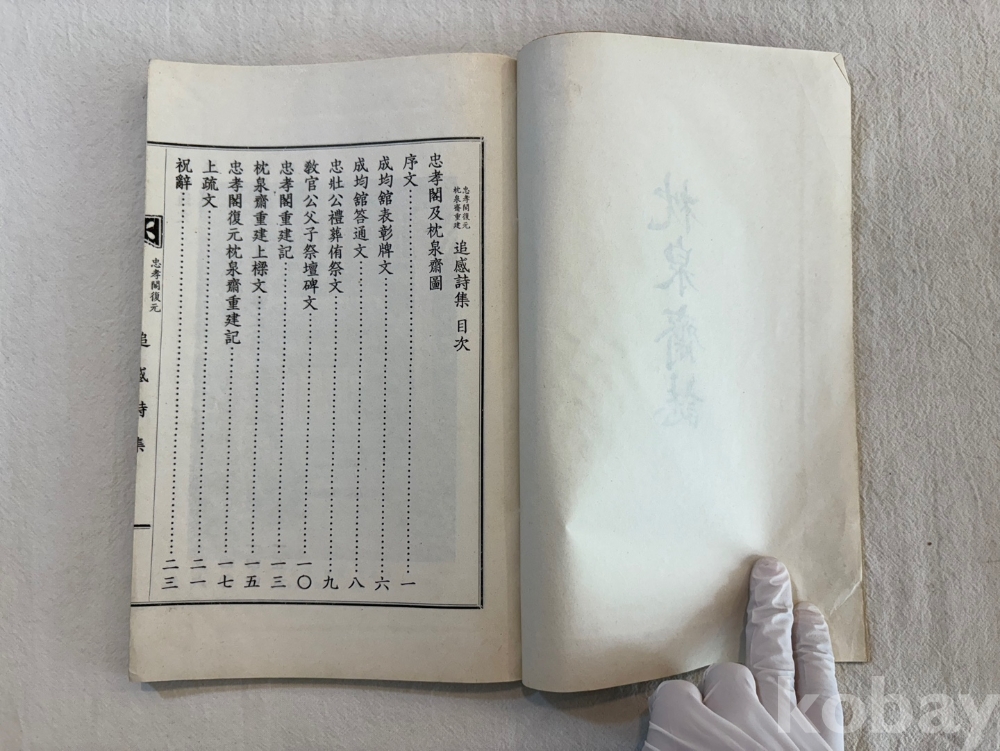 枕泉齋
忠孝閣復元
枕泉齋重建
追感詩集 目次
忠孝閣及枕泉齋圖
序文…………一
成均舘表彰牌文…………六
成均舘答通文…………八
忠壯公禮葬侑祭文…………九
敎官公父子祭壇碑文…………一〇
忠孝閣重建記…………一三
枕泉齋重建上樑文…………一五
忠孝閣復元枕泉齋重建記…………一七
上疏文…………二一
祝辭…………二三
忠孝閣復元
追感詩集
kobay